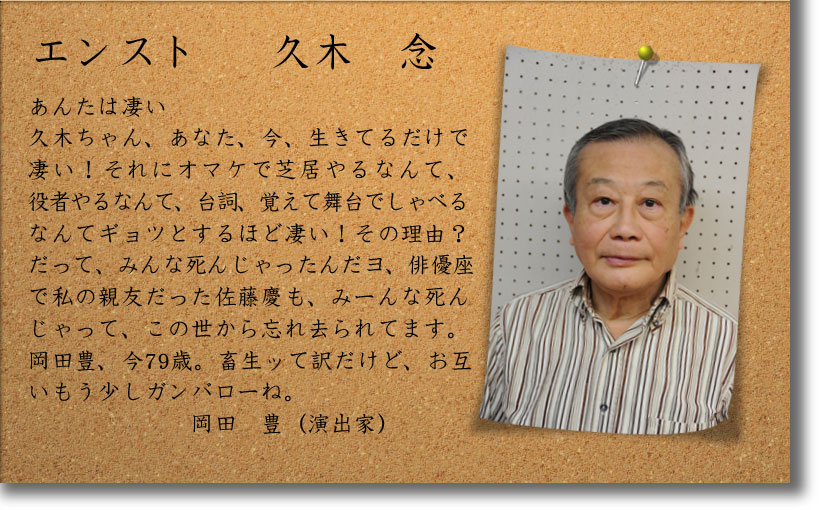 エンスト　久木　念
あんたは凄い
久木ちゃん、あなた、今、生きてるだけで
凄い！それにオマケで芝居やるなんて、
役者やるなんて、台詞、覚えて舞台でしゃべる
なんてギョツとするほど凄い！その理由？
だって、みんな死んじゃったんだヨ、俳優座
で私の親友だった佐藤慶も、みーんな死ん
じゃって、この世から忘れ去られてます。
岡田豊、今79歳。畜生ッて訳だけど、お互
いもう少しガンバローね。
岡田　豊（演出家）